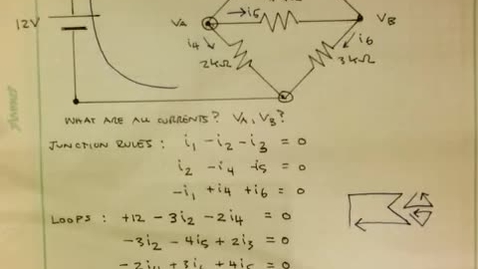 i5
VA
VB
12V
i4
i6
2kΩ
3kΩ
WHAT ARE ALL CURRENTS? VA, VB?
JUNCTION RULES: i1 - i2 - i3 = 0
i2 - i4 - i5 = 0
-i1 + i4 + i6 = 0
LOOPS: +12 - 3i2 - 2i4 = 0
-3i2 - 4i5 + 2i3 = 0